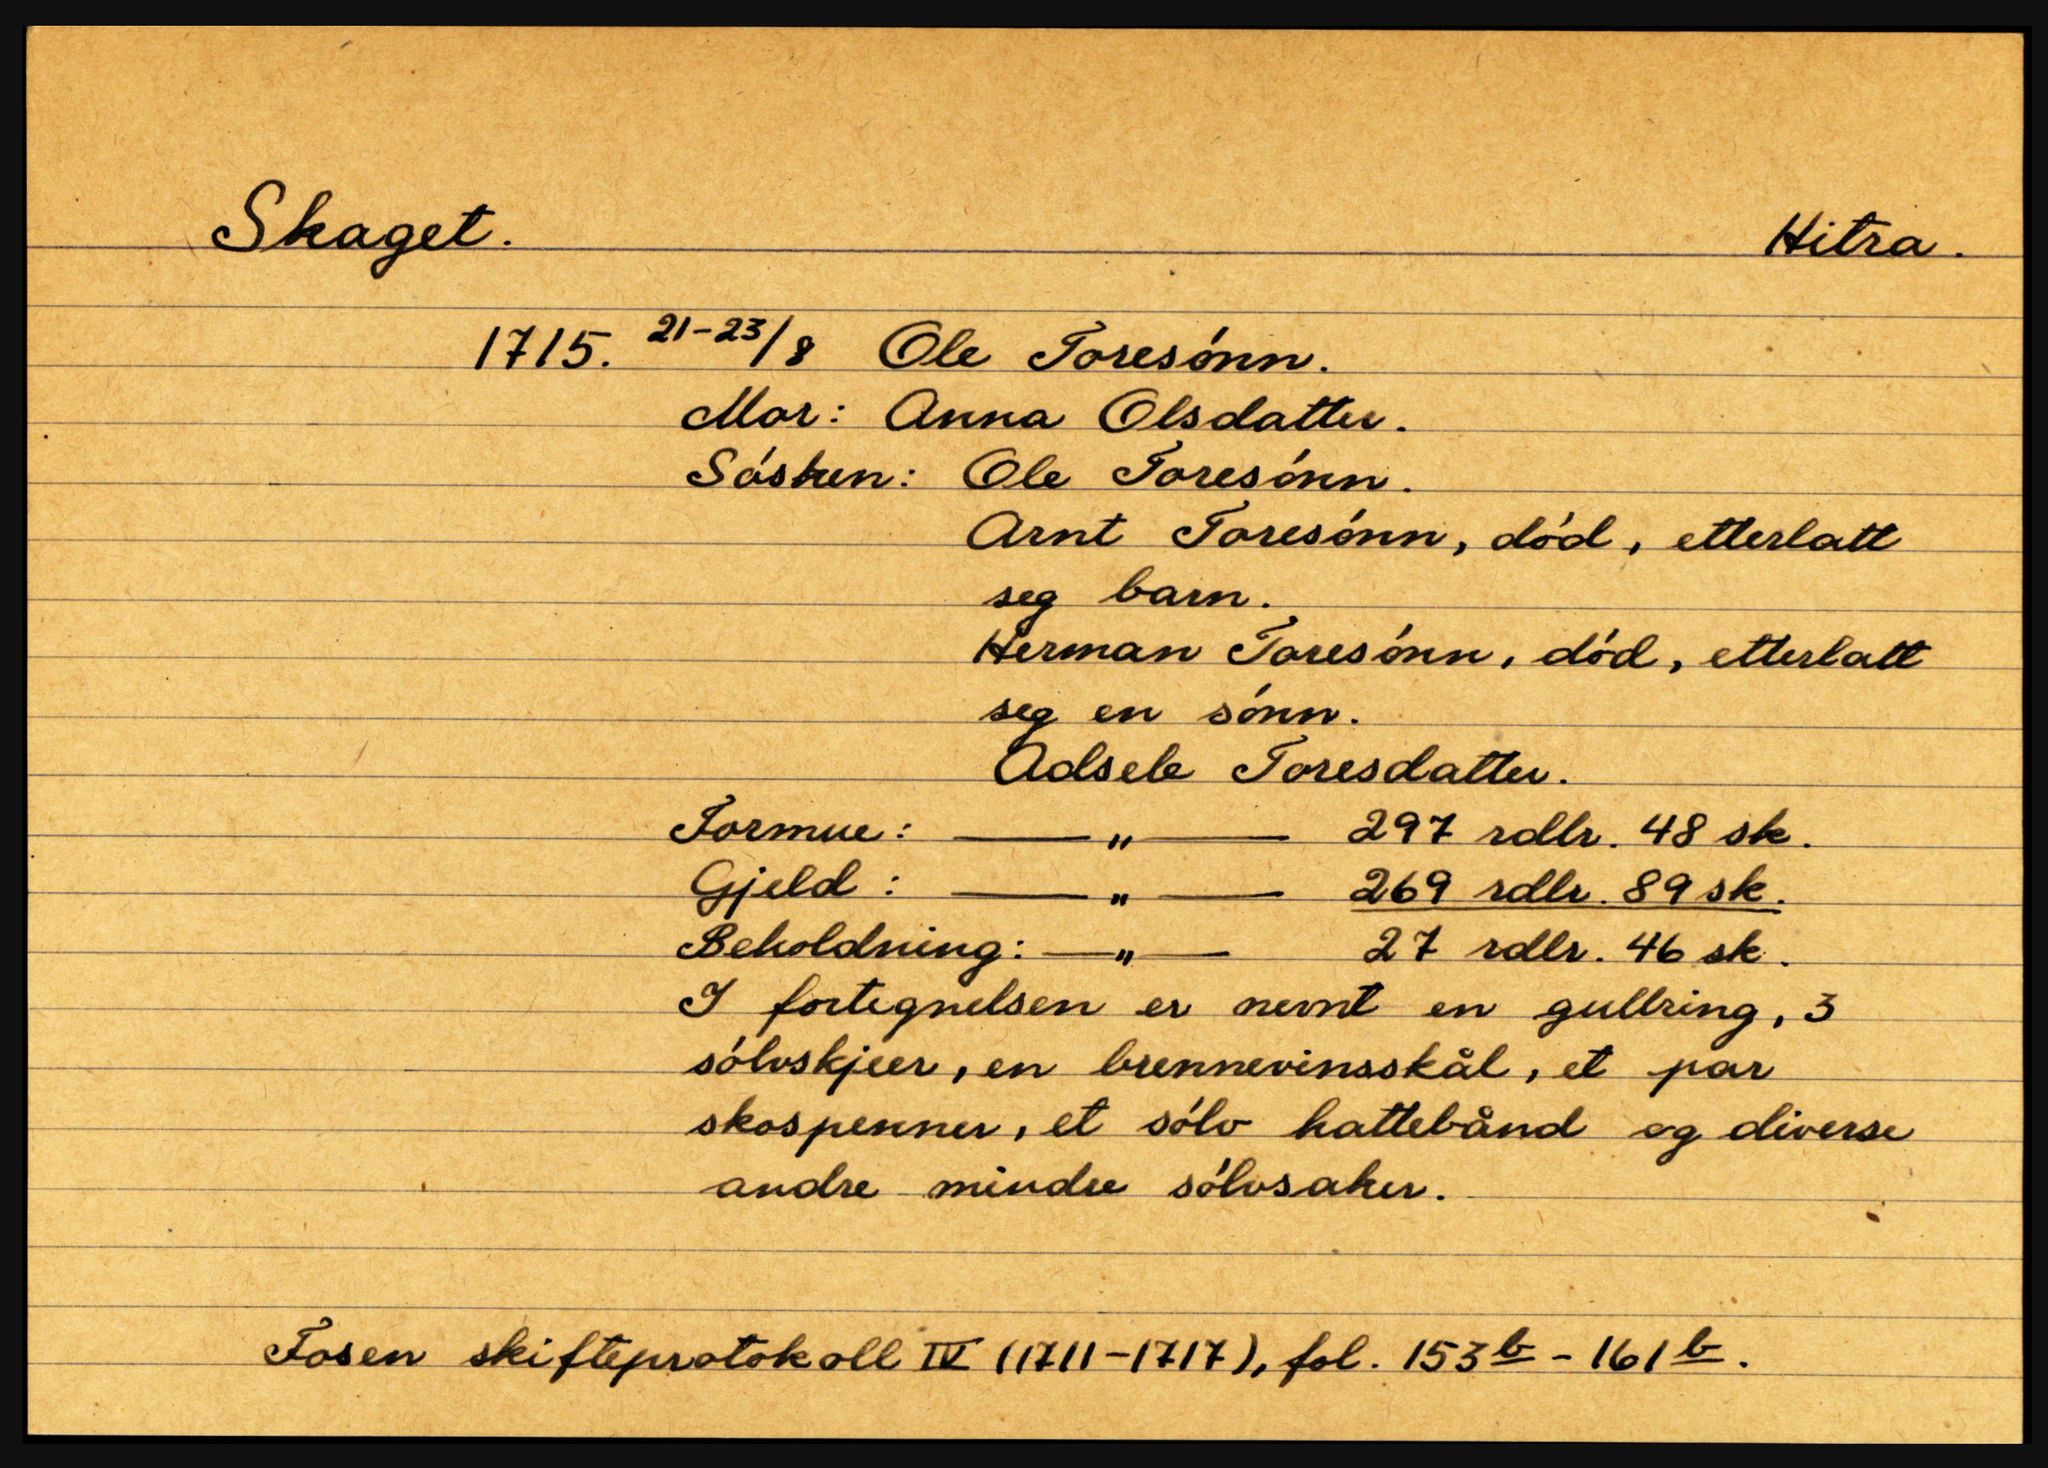 Skaget. Hitra.
1715. 21-23/8 Ole Toresónn.
Mor: Anna Olsdatter.
Sósken: Ole Toresónn.
Arnt Toresónn, dód, etterlatt
seg barn.
Herman Toresónn, dód, etterlatt
seg en sónn.
Adsele Toresdatter.
Formue: — " — 297 rdlr. 48 sk.
Gjeld: — " — 269 rdlr. 89 sk.
Beholdning: — " — 27 rdlr. 46 sk.
I fortegnelsen er nevnt en gullring, 3
sólvskjeer, en brennevinsskål, et par
skospenner, et sólv hattebånd og diverse
andre mindre sólvsaker.
Fosen skifteprotokoll IV (1711-1717), fol. 153b - 161b.